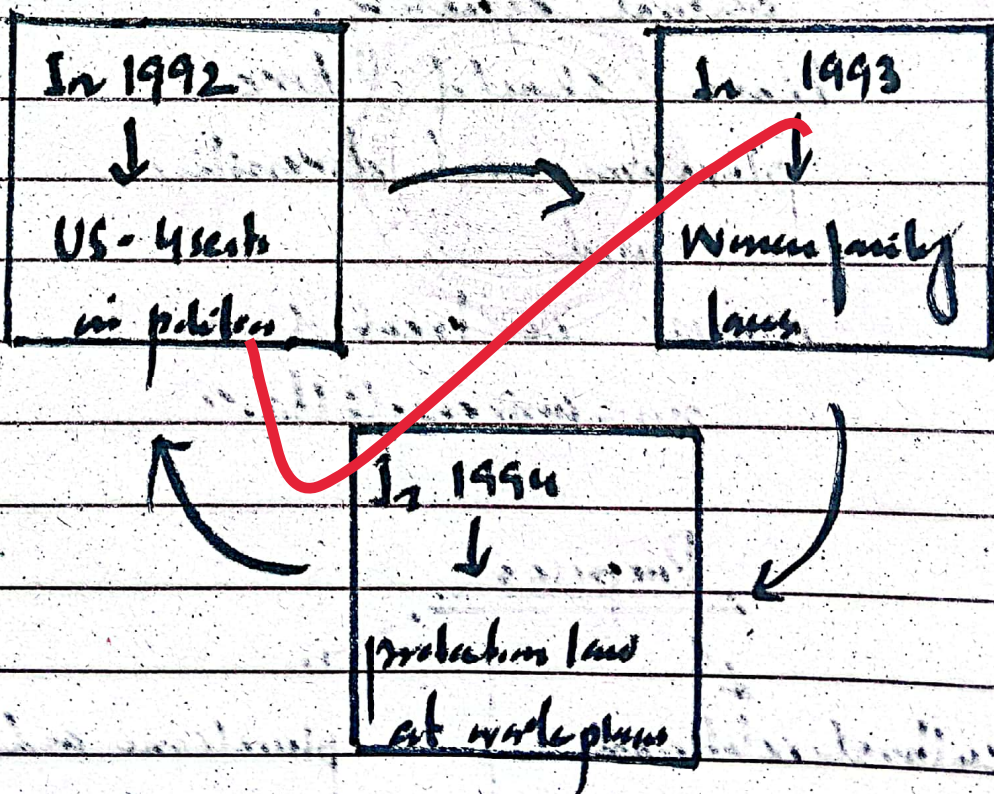 In 1992
US - 4 seats
in politics
In 1993
Women family
laws
In 1994
protection law
at work place